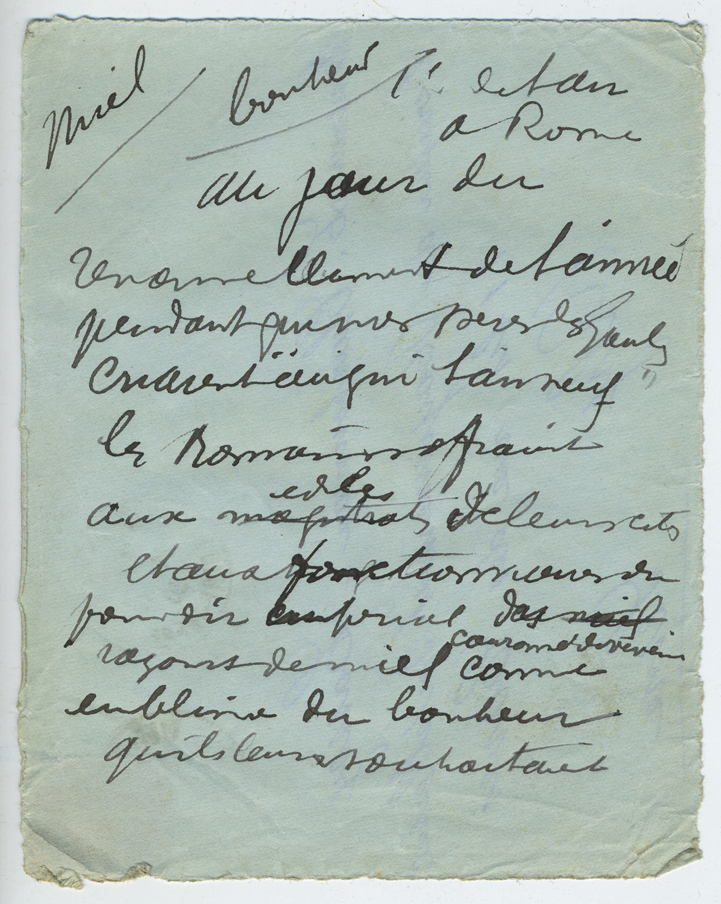 Miel bonheur 1er de l'an
a Rome
au jour du
renouvellement de l'année
pendant que nos peres les Gauls
criaient "au gui l'an neuf"
les Romains offraient
ediles
aux magistrats de leurs cites
et aux fonctionnaires du
pouvoir imperial des miel
couronné de verveine
rayons de miel comme
embleme du bonheur
qu'ils leurs souhaitaient